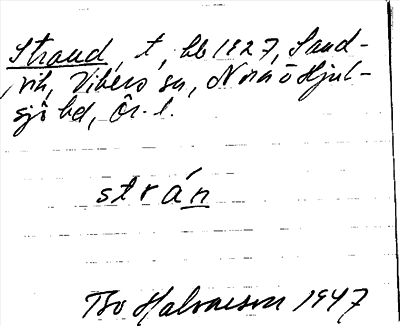 Strand, t, bb 1827, Sand-
vik, Vibers sn, Nora o Hjul-
sjö bd, Ör. l.
strán
Bo Halvarson 1947